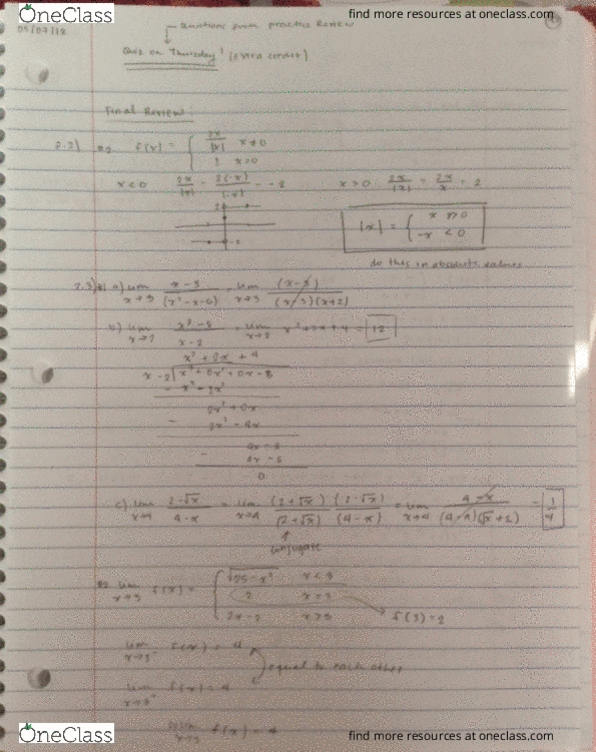 OneClass
find more resources at oneclass.com
Questions from practice Review
05/07/18
Quiz on Thursday! (extra credit)
Final Review:
f(x) = { 2x/|x| x≠0
1 x=0
x<0 2x/|x| = 2(-x)/(-x) = -2 x>0 2x/|x| = 2x/x = 2
|x| = { x ≥0
-x <0
do this in absolute values
a) lim x→3 x-3/(x²-x-6) = lim x→3 (x-3)/(x-3)(x+2)
b) lim x→2 x³-8/x-2 = lim x→2 x²+2x+4 = 12
x²+2x+4
x-2 x³+0x²+0x-8
- x³-2x²
2x²+0x
- 2x²-4x
4x-8
- 4x-8
0
c) lim x→4 2-√x/4-x = lim x→4 (2+√x)/(2+√x) (2-√x)/(4-x) = lim x→4 4-x/(4-x)(√x+2) = 1/4
conjugate
lim x→3 f(x) = { √25-x² x<3
2 x=3
2x-2 x>3
f(3)=2
lim x→3⁻ f(x) = 4
equal to each other
lim x→3⁺ f(x) = 4
lim x→3 f(x) = 4
OneClass
find more resources at oneclass.com